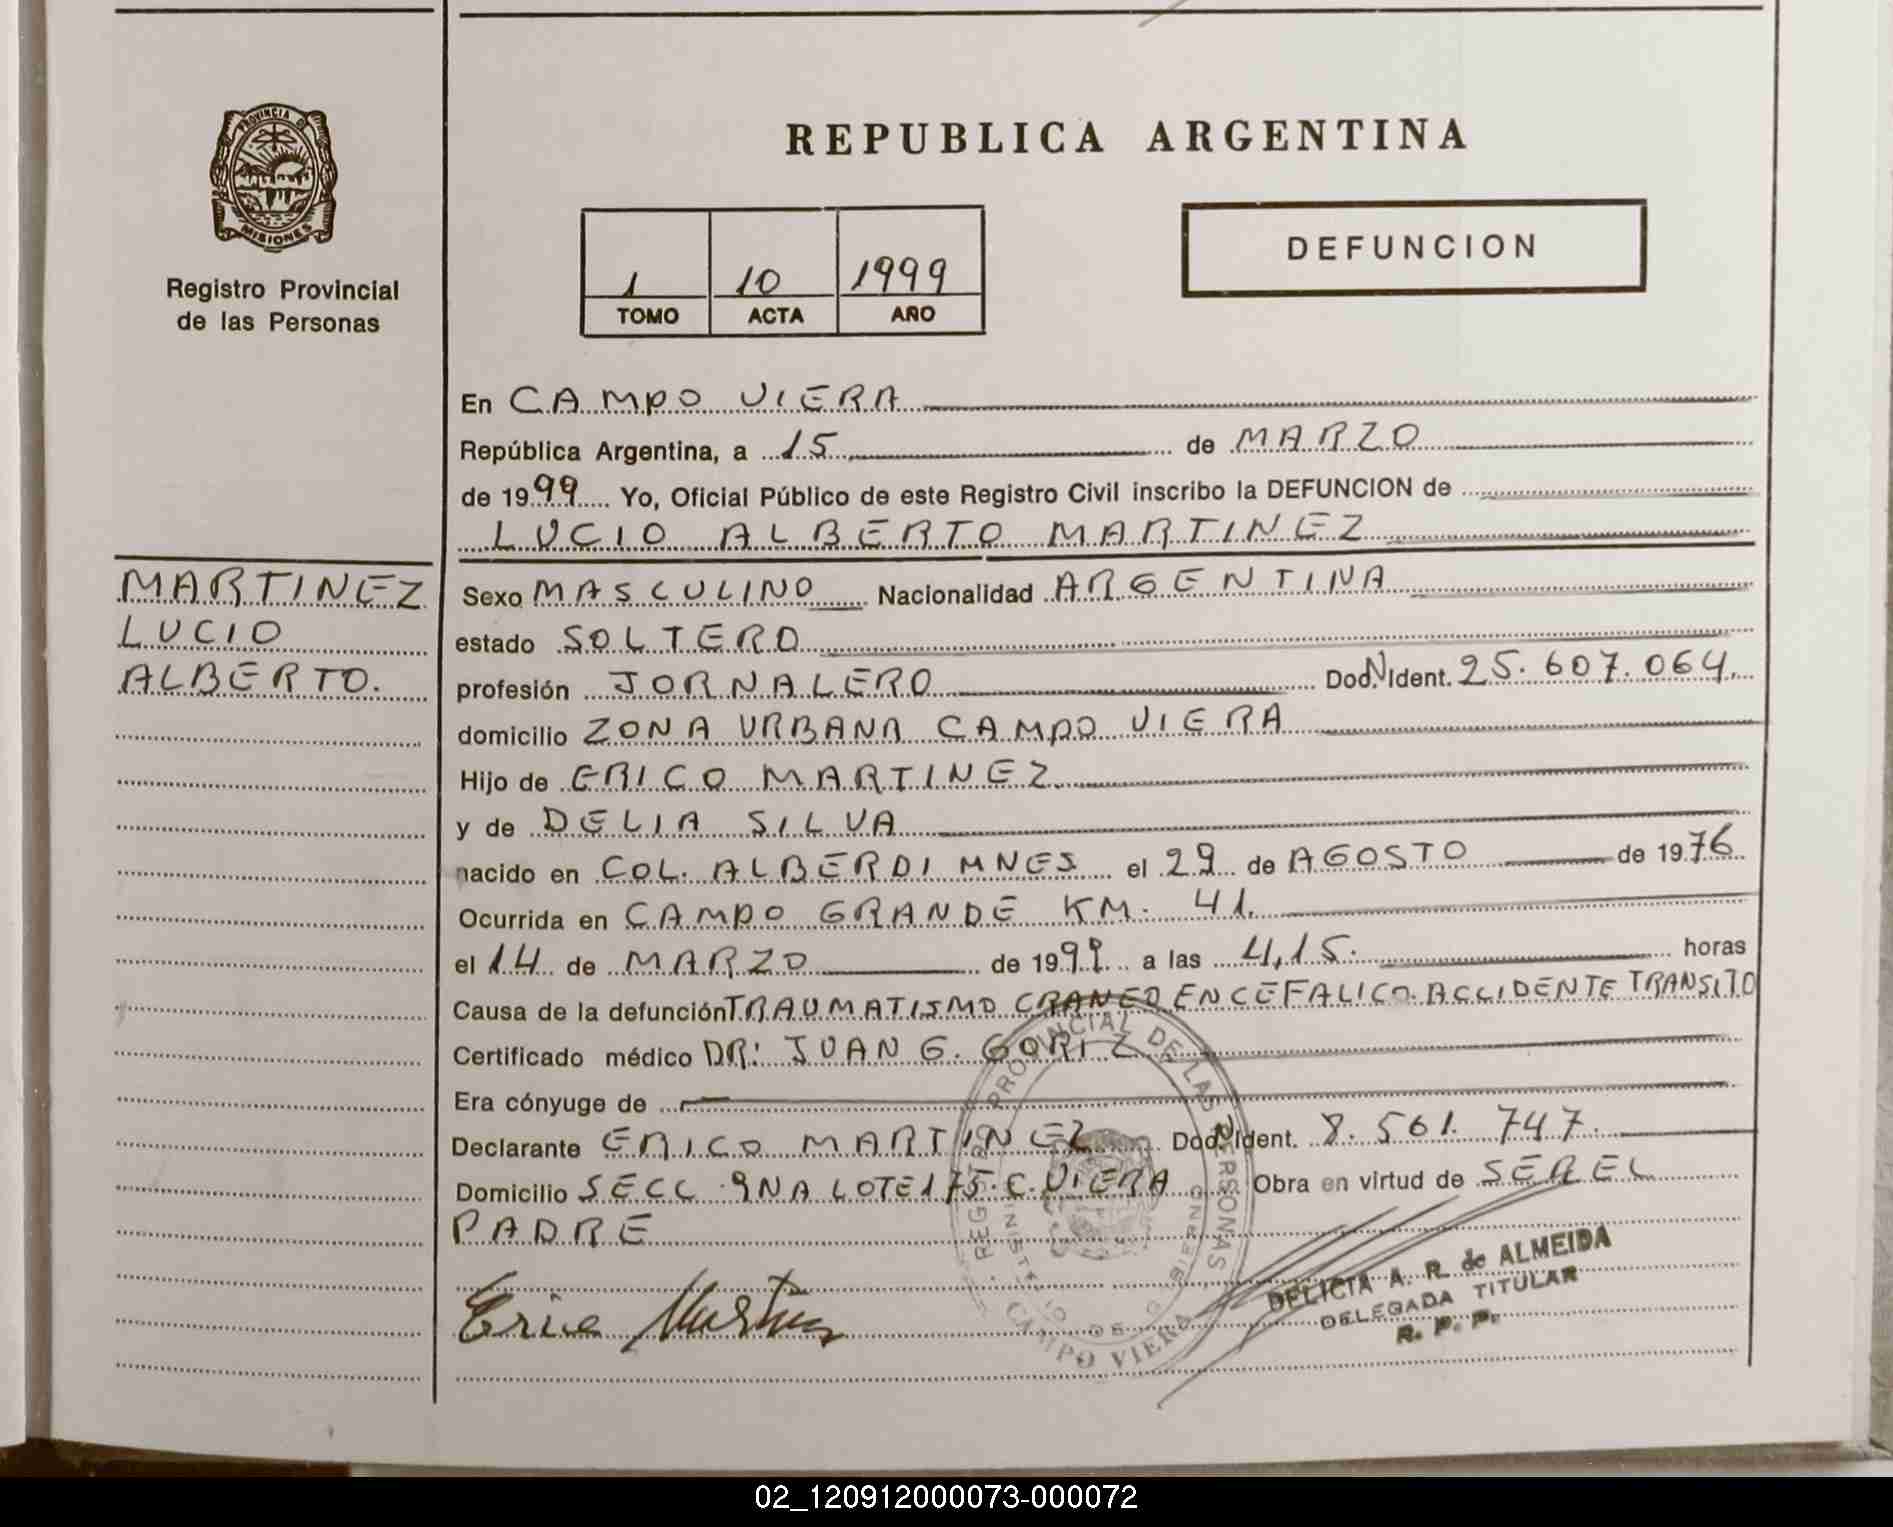 PROVINCIA DE
MISIONES
Registro Provincial
de las Personas
REPUBLICA ARGENTINA
1 10 1999
TOMO ACTA AÑO
DEFUNCION
En CAMPO VIERA
República Argentina, a 15 de MARZO
de 1999 Yo, Oficial Público de este Registro Civil inscribo la DEFUNCION de
LUCIO ALBERTO MARTINEZ
MARTINEZ
LUCIO
ALBERTO.
Sexo MASCULINO Nacionalidad ARGENTINA
estado SOLTERO
profesión JORNALERO Doc.N Ident. 25.607.064
domicilio ZONA URBANA CAMPO VIERA
Hijo de ERICO MARTINEZ
y de DELIA SILVA
nacido en COL. ALBERDI MNES el 29 de AGOSTO de 1976
Ocurrida en CAMPO GRANDE KM. 41.
el 14 de MARZO de 1999 a las 4,15. horas
Causa de la defunción TRAUMATISMO CRANEO ENCEFALICO. ACCIDENTE TRANSITO
Certificado médico DR: JUAN G. GORIZ
Era cónyuge de
Declarante ERICO MARTINEZ Doc.N Ident. 8.561.747.
Domicilio SECC. 9NA LOTE 175. C. VIERA Obra en virtud de SER EL
PADRE
Erico Martinez
REGISTRO PROVINCIAL DE LAS PERSONAS
MINISTERIO DE GOBIERNO
CAMPO VIERA
DELICIA A. R. de ALMEIDA
DELEGADA TITULAR
R. P. P.
02_120912000073-000072